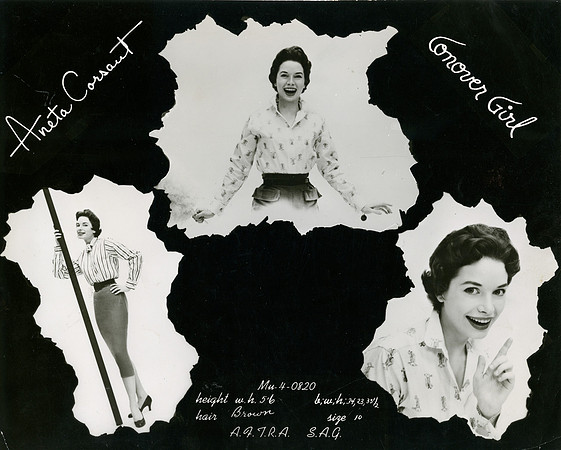 Aneta Corsaut
Conover Girl
Mu-4-0820
height w.h. 5'6 b;w;h; 34,23,33½
hair Brown size 10
A.F.T.R.A. S.A.G.